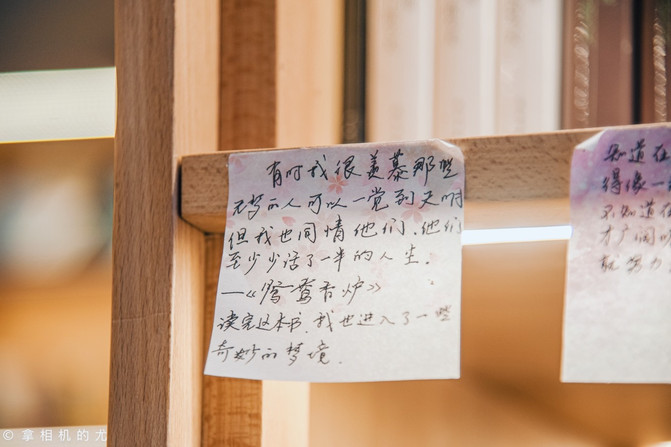 有时我很羡慕那些
无梦的人可以一觉到天明
但我也同情他们.他们
至少少活了一半的人生.
—《鸳鸯香炉》
读完这本书.我也进入了一些
奇妙的梦境.
知道在
得像一
不知道在
才广阔
就努力
© 拿相机的尤